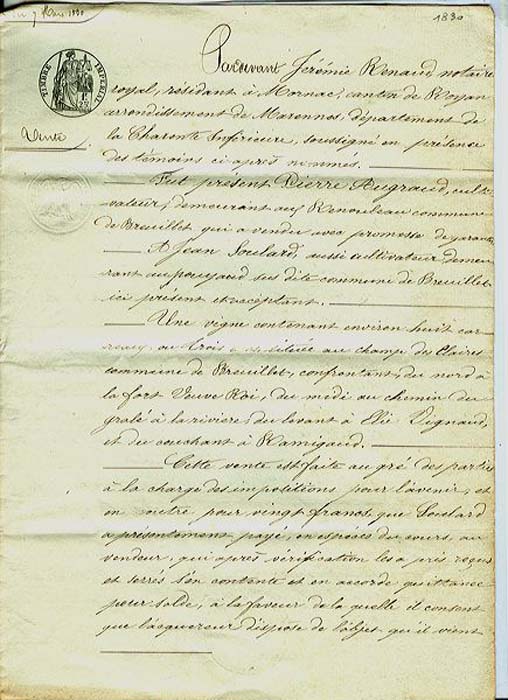 du 7 Mars 1830
1830
TIMBRE IMPERIAL
Vente
Pardevant Jérémie Renaud, notaire
royal, résidant à Mornac, canton de Royan
arrondissement de Marennes, département de
la Charente Inférieure, soussigné en présence
des témoins ci après nommés.
Fut présent Pierre Augraud, culti-
vateur, demeurant aux Renouleau commune
de Breuillet qui a vendu avec promesse de garantie
A Jean Soulard, aussi cultivateur demeu
rant au pouyaud sus dite commune de Breuillet
ici présent et acceptant.
Une vigne contenant environ huit car
reaux, ou trois située au champ des Claires
commune de Breuillet, confrontant, du nord à
la fort Veuve Roi, du midi au chemin du
gralé à la rivière, du levant à Elie Vignaud,
et du couchant à Ramigaud.
Cette vente est faite au gré des parties
à la charge des impositions pour l'avenir, et
en outre pour vingt francs que Soulard
a présentement payé, en espèces du cours, au
vendeur, qui après vérification les a pris, reçus
et serrés s'en contente et en accorde quittance
pour solde, à la faveur de la quelle il consent
que l'acquéreur dispose de l'objet qu'il vient